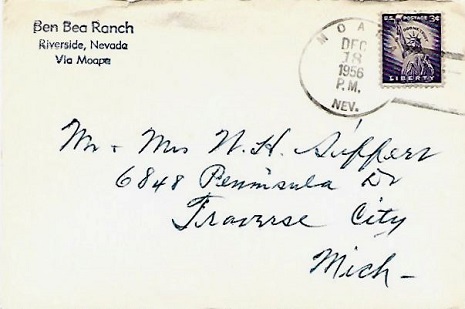 Ben Bea Ranch
Riverside, Nevada
Via Moapa
MOA
DEC
18
1956
P.M.
NEV.
U.S. POSTAGE 3¢
LIBERTY
Mr & Mrs W. H. Suffern
6848 Peninsula Dr
Traverse City
Mich-